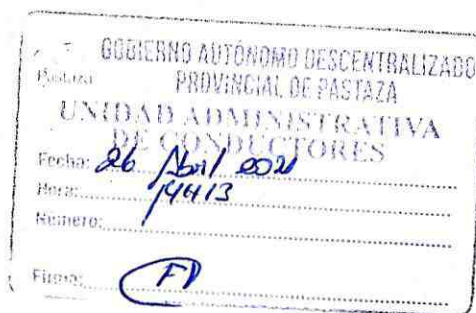 GOBIERNO AUTÓNOMO DESCENTRALIZADO
Pastaza PROVINCIAL DE PASTAZA
UNIDAD ADMINISTRATIVA
DE CONDUCTORES
Fecha: 26 Abril 2021
Hora: 14H13
Numero:
Firma: FP